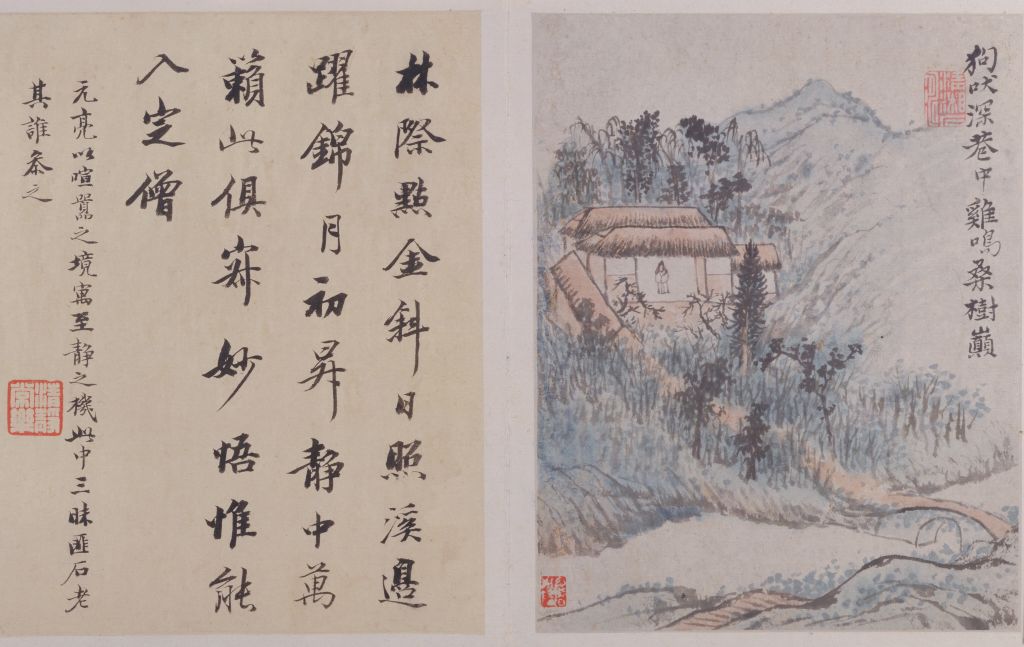 狗吠深巷中雞鳴桑樹巔
林際點金斜日照溪邊
躍錦月初昇靜中萬
籟此俱寂妙悟惟能
入定僧
元亮以喧囂之境寓至静之機此中三昧匪石老
其誰叅之